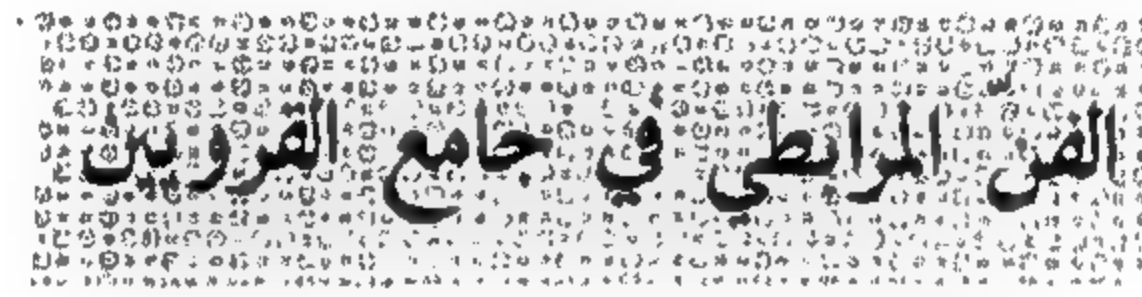 الفنّ المرابطي في جامع القرويين